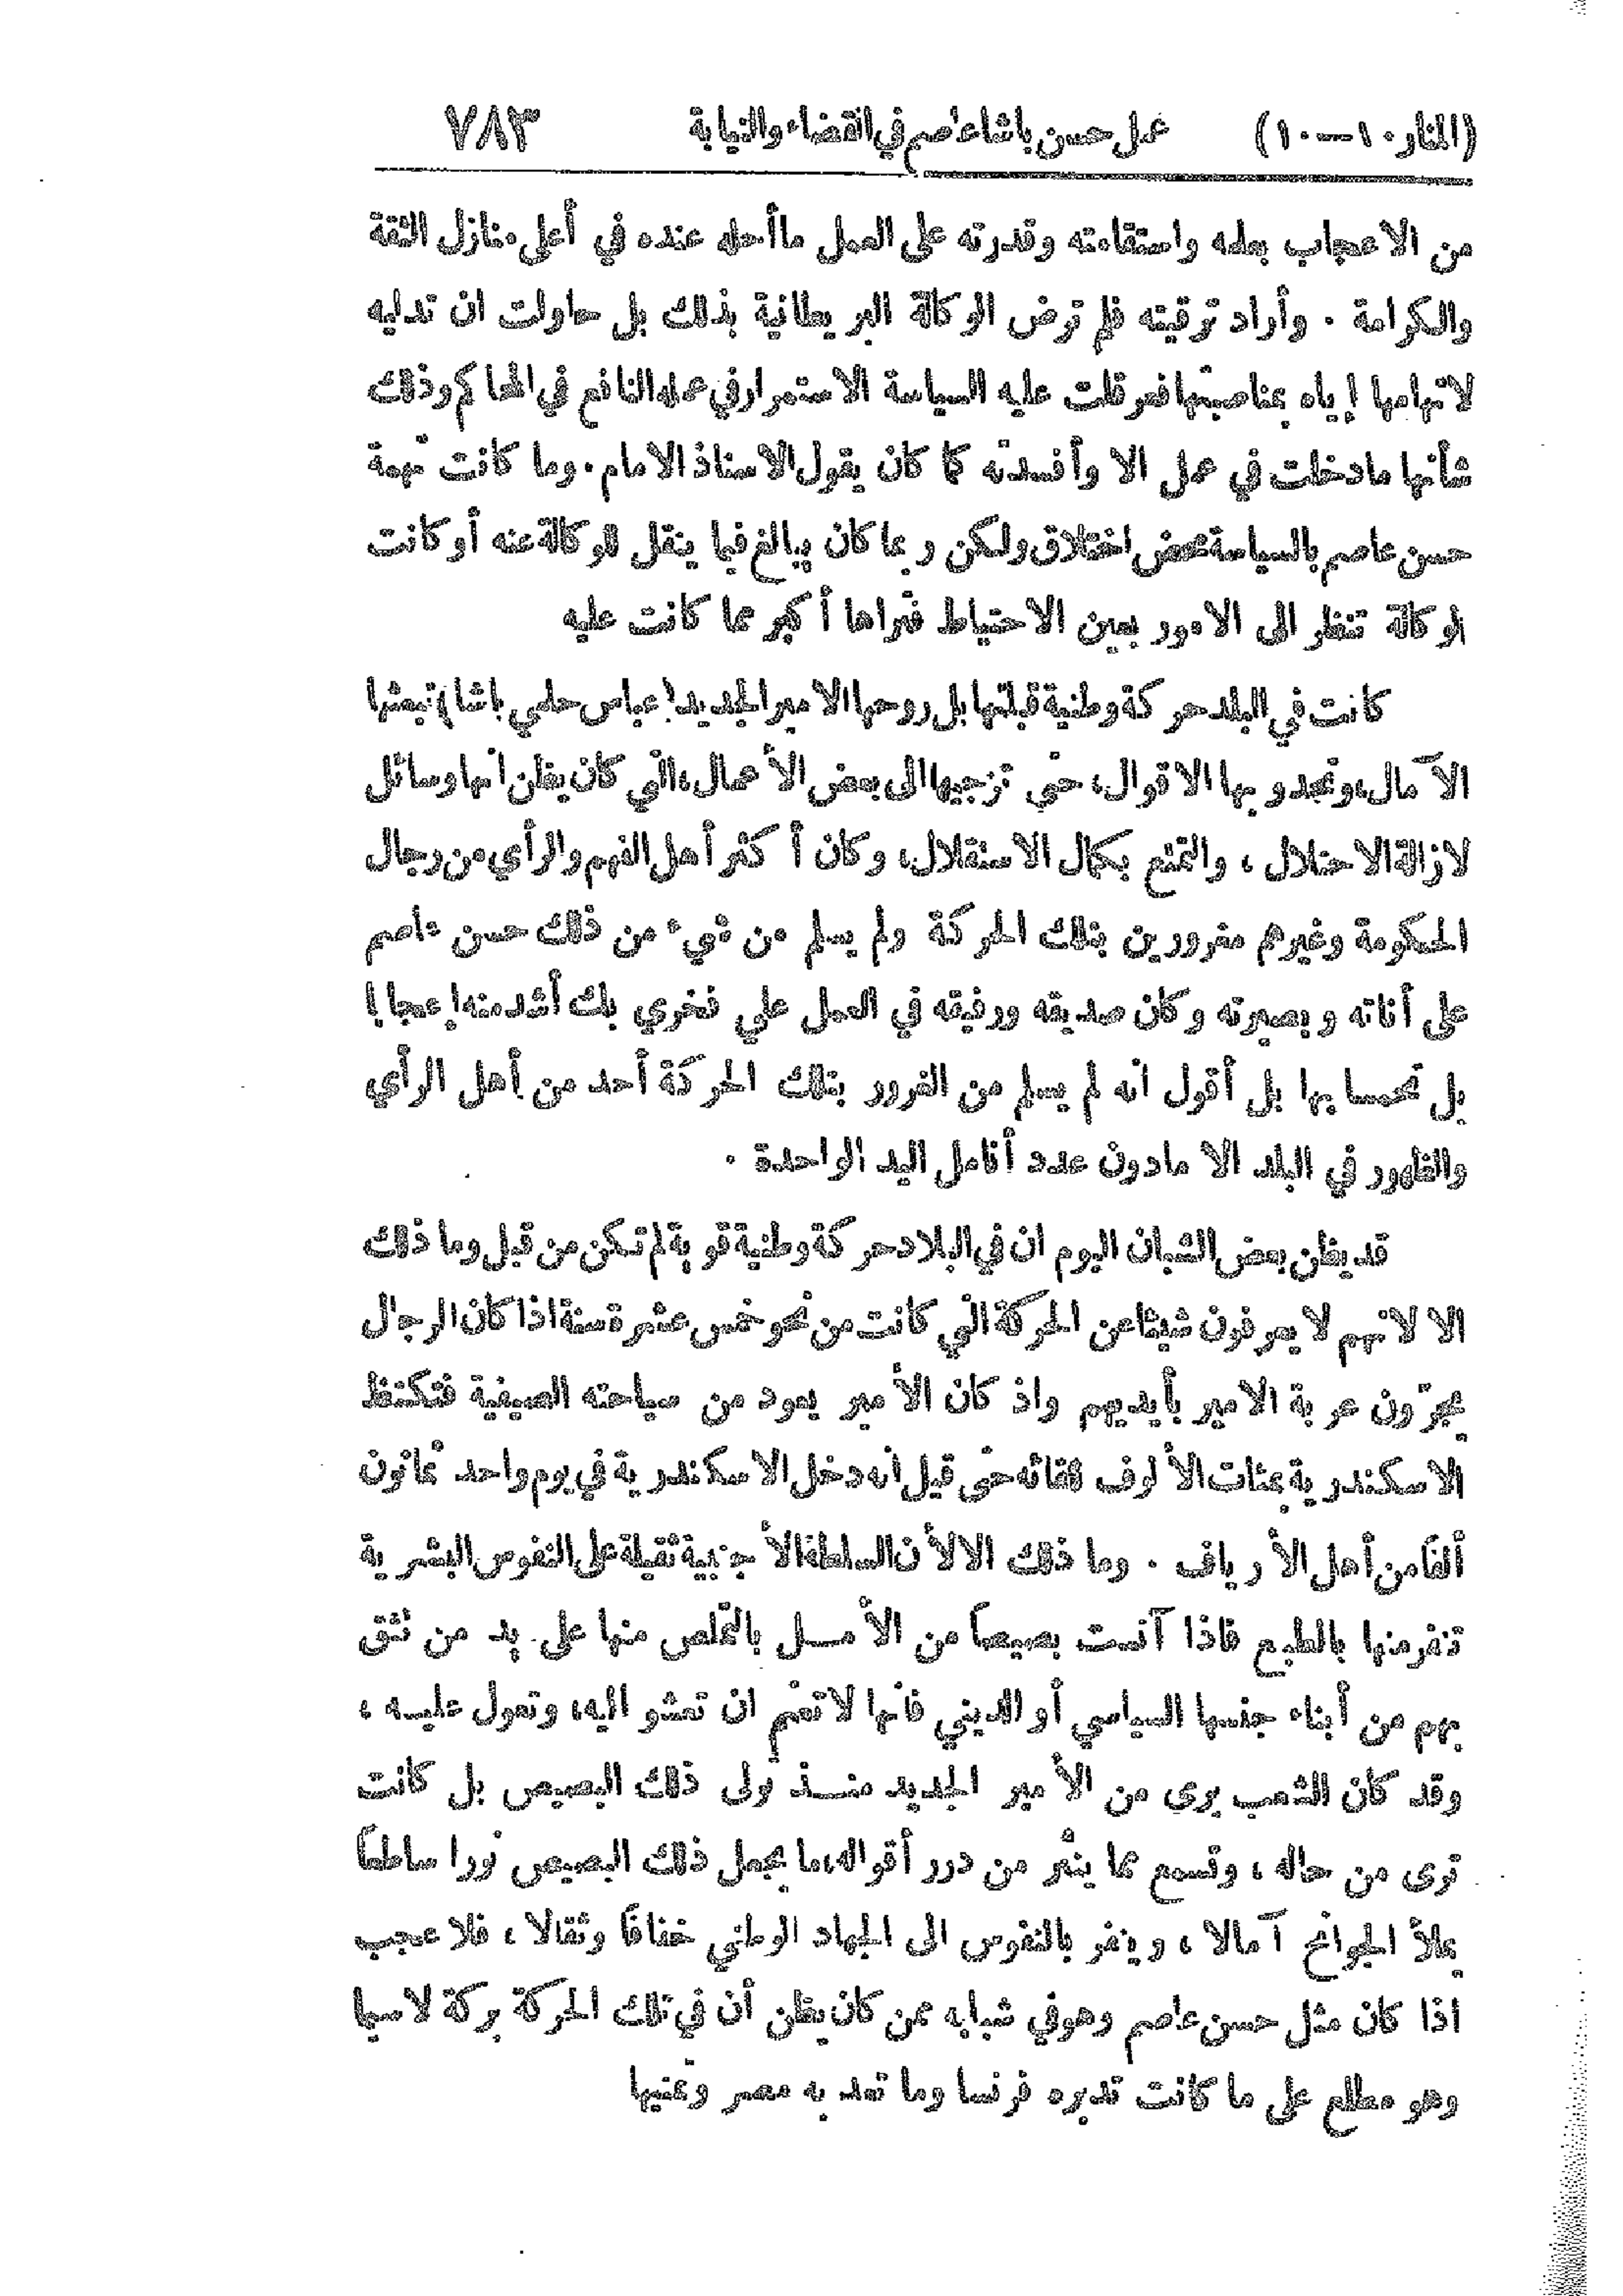 (المنار ١٠ — ١٠) عمل حسن باشا عاصم في القضاء والنيابة ٧٨٣
من الاعجاب بعلمه واستقامته وقدرته على العمل ما أحله عنده في أعلى منازل الثقة
والكرامة . وأراد ترقيته فلم ترض الوكالة البريطانية بذلك بل حاولت ان تدليه
لاتهامها إياه بمناصبتها فعرقلت عليه السياسة الاستمرار في عمله النافع في المحاكم وذلك
شأنها ما دخلت في عمل الا وأفسدته كما كان يقول الاستاذ الامام . وما كانت تهمة
حسن عاصم بالسياسة محض اختلاق ولكن ربما كان يبالغ فيما ينقل للوكالة عنه أو كانت
الوكالة تنظر الى الامور بعين الاحتياط فتراها أكبر مما كانت عليه
كانت في البلد حركة وطنية قبلتها بل روحها الامير الجديد (عباس حلمي باشا) تبعثها
الآمال، وتحدو بها الاقوال، حتى تزجيها الى بعض الأعمال، التي كان يظن أنها وسائل
لازالة الاحتلال ، والتمتع بكمال الاستقلال، وكان أكثر أهل الفهم والرأي من رجال
الحكومة وغيرهم مغرورين بتلك الحركة ولم يسلم من شيء من ذلك حسن عاصم
على أناته وبصيرته وكان صديقه ورفيقه في العمل علي فخري بك أشد منه إعجابا
بل تحمسا بها بل أقول انه لم يسلم من الغرور بتلك الحركة أحد من أهل الرأي
والظهور في البلد الا ما دون عدد أنامل اليد الواحدة .
قد يظن بعض الشبان اليوم ان في البلاد حركة وطنية قوية لم تكن من قبل وما ذلك
الا لانهم لا يعرفون شيئا عن الحركة التي كانت من نحو خمس عشرة سنة اذا كان الرجال
يجرّون عربة الامير بأيديهم واذ كان الأمير يعود من سياحته الصيفية فتكتظ
الاسكندرية بمئات الألوف للقائه حتى قيل انه دخل الاسكندرية في يوم واحد ثمانون
ألفاً من أهل الأرياف . وما ذلك الا لأن السلطة الأجنبية ثقيلة على النفوس البشرية
تنفر منها بالطبع فاذا آنست بصيصاً من الأمل بالتملص منها على يد من تثق
بهم من أبناء جنسها السياسي أو الديني فانها لا تعتم ان تعشو اليه، وتعول عليه ،
وقد كان الشعب يرى من الأمير الجديد منذ تولى ذلك البصيص بل كانت
ترى من حاله ، وتسمع مما ينثر من درر أقواله، ما يجعل ذلك البصيص نورا ساطعاً
يملأ الجوانح آمالا ، وينفر بالنفوس الى الجهاد الوطني خفافاً وثقالا ، فلا عجب
اذا كان مثل حسن عاصم وهو في شبابه ممن كان يظن أن في تلك الحركة بركة لا سيما
وهو مطلع على ما كانت تدبره فرنسا وما تعد به مصر وتمنيها